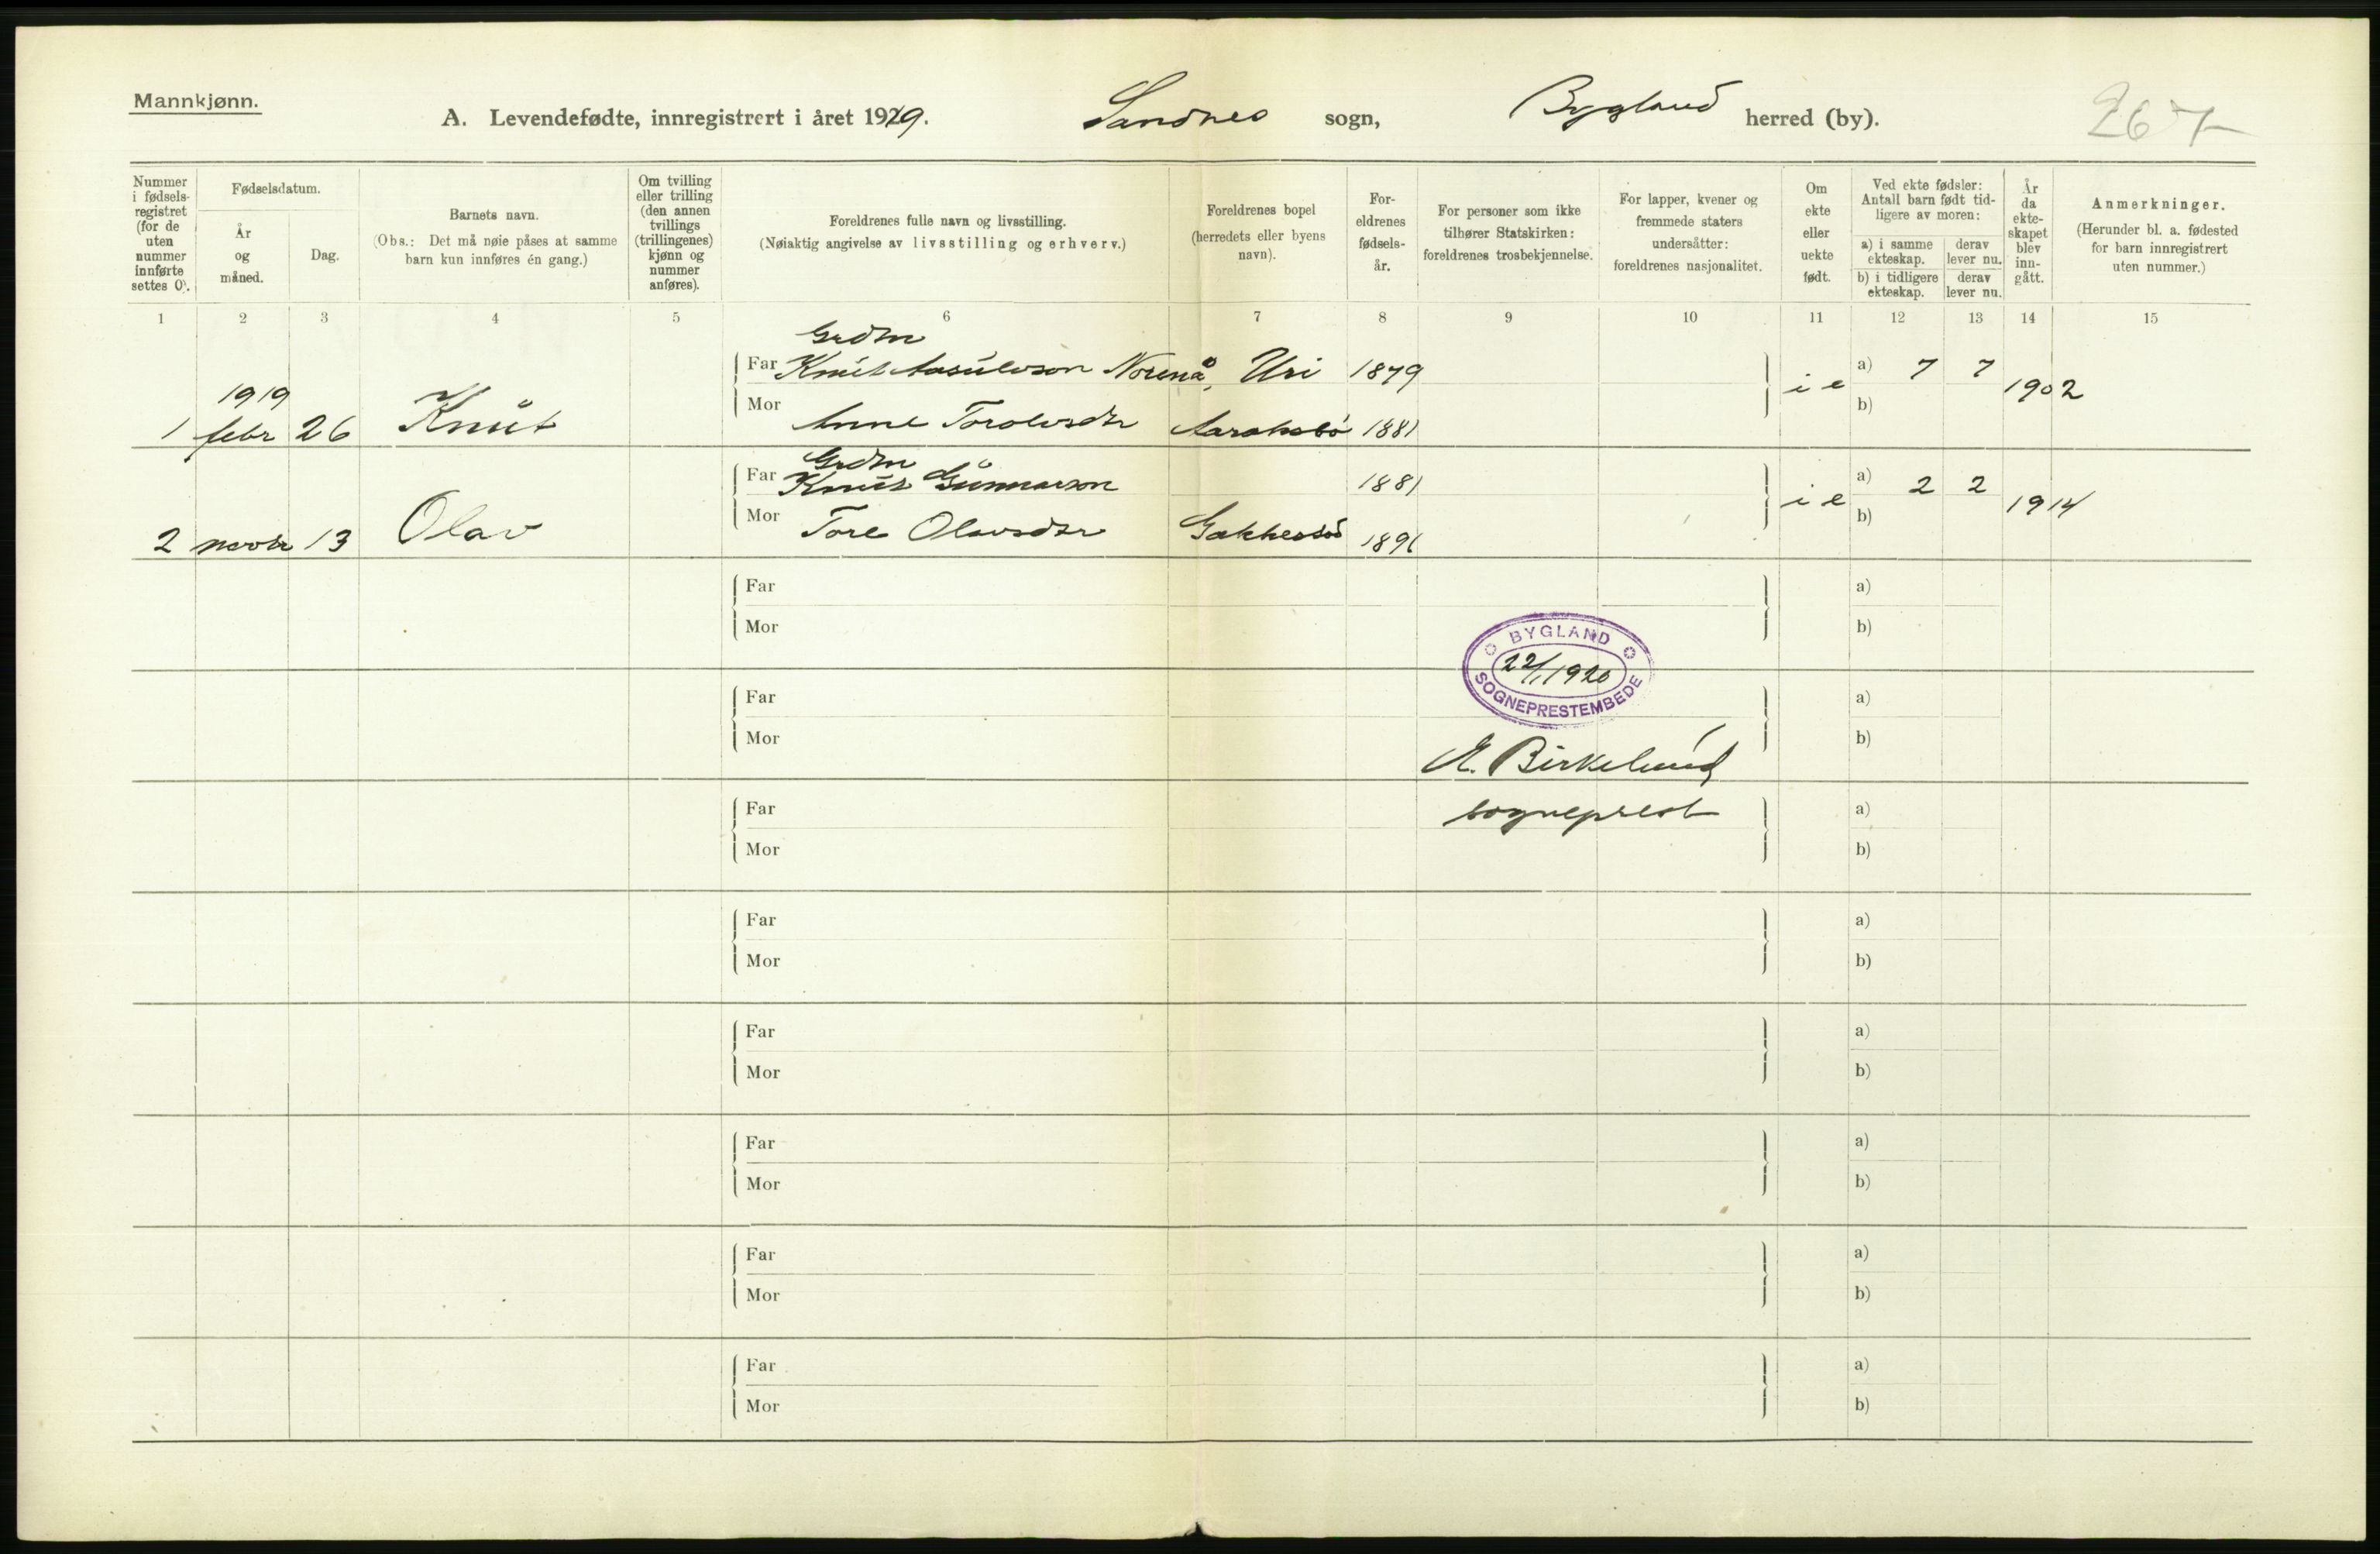 Mannkjønn.
A. Levendefødte, innregistrert i året 1919. Sandnes sogn, Bygland herred (by). 267
Nummer i fødselsregistret (for de uten nummer innførte settes 0).
Fødselsdatum.
År og måned.
Dag.
Barnets navn.
(Obs.: Det må nøie påses at samme barn kun innføres én gang.)
Om tvilling eller trilling (den annen tvillings (trillingenes) kjønn og nummer anføres).
Foreldrenes fulle navn og livsstilling.
(Nøiaktig angivelse av livsstilling og erhverv.)
Foreldrenes bopel (herredets eller byens navn).
Foreldrenes fødselsår.
For personer som ikke tilhører Statskirken: foreldrenes trosbekjennelse.
For lapper, kvener og fremmede staters undersåtter: foreldrenes nasjonalitet.
Om ekte eller uekte født.
Ved ekte fødsler: Antall barn født tidligere av moren:
a) i samme ekteskap. derav lever nu.
b) i tidligere ekteskap. derav lever nu.
År da ekteskapet blev inngått.
Anmerkninger.
(Herunder bl. a. fødested for barn innregistrert uten nummer.)
1 2 3 4 5 6 7 8 9 10 11 12 13 14 15
Grdm
Far Knut Aasulvson Norenå, Uri 1879 a) 7 7
1919 i e 1902
1 febr 26 Knut Mor Anne Torolvsdtr 1881 b)
Grdm
Far Knut Gunnarson 1881 a) 2 2
i e 1914
2 novbr 13 Olav Mor Tore Olavsdtr 1891 b)
Far a)
Mor b)
BYGLAND
22/1 1920
SOGNEPRESTEMBEDE
Far a)
Mor b)
Birkelund
sogneprest
Far a)
Mor b)
Far a)
Mor b)
Far a)
Mor b)
Far a)
Mor b)
Far a)
Mor b)
Far a)
Mor b)